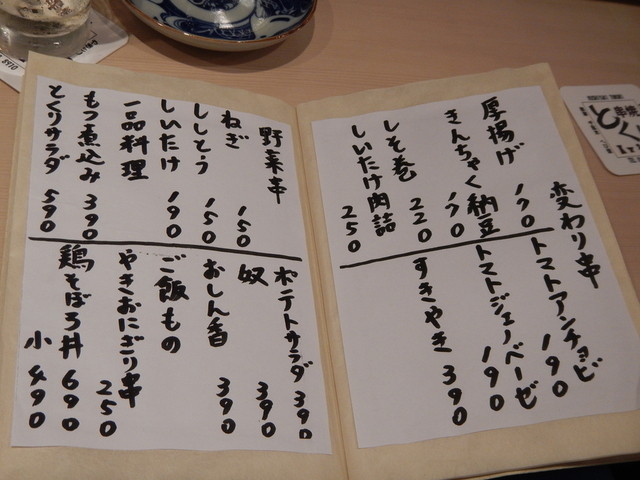 変わり串
厚揚げ 170
きんちゃく納豆 170
しそ巻 220
しいたけ肉詰 250
トマトアンチョビ 190
トマトジェノベーゼ 190
すきやき 390
野菜串
ねぎ 150
ししとう 150
しいたけ 190
一品料理
もつ煮込み 390
とくりサラダ 590
ポテトサラダ 390
奴 390
おしん香 390
ご飯もの
やきおにぎり串 250
鶏そぼろ丼 690
小 490
串焼
とく